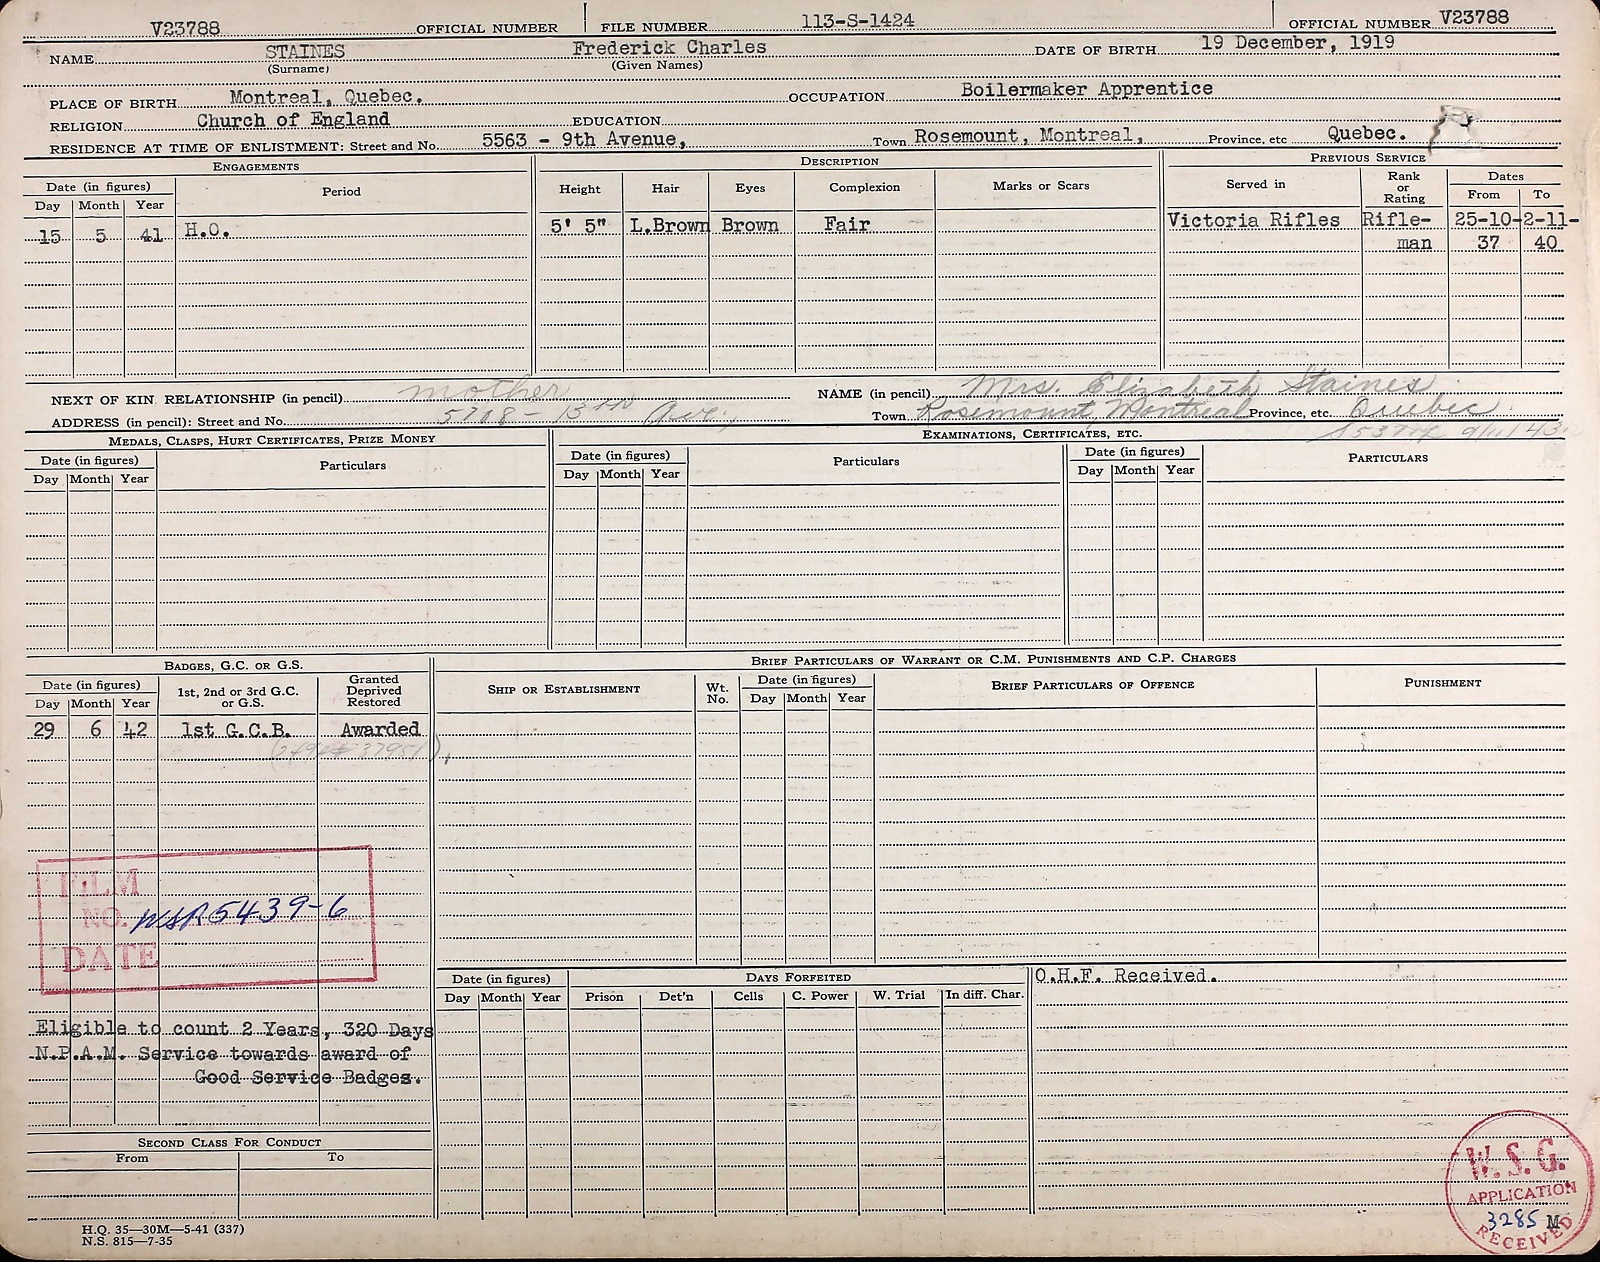 V23788 OFFICIAL NUMBER FILE NUMBER 113-S-1424 OFFICIAL NUMBER V23788
NAME STAINES Frederick Charles DATE OF BIRTH 19 December, 1919
(Surname) (Given Names)
PLACE OF BIRTH Montreal, Quebec. OCCUPATION Boilermaker Apprentice
RELIGION Church of England EDUCATION
RESIDENCE AT TIME OF ENLISTMENT: Street and No. 5563 - 9th Avenue, Town Rosemount, Montreal, Province, etc Quebec.
ENGAGEMENTS DESCRIPTION PREVIOUS SERVICE
Date (in figures) Period Height Hair Eyes Complexion Marks or Scars Served in Rank or Rating Dates
Day Month Year From To
15 5 41 H.O. 5' 5" L.Brown Brown Fair Victoria Rifles Rifle- 25-10- 2-11-
man 37 40
NEXT OF KIN RELATIONSHIP (in pencil) mother NAME (in pencil) Mrs. Elizabeth Staines
ADDRESS (in pencil): Street and No. 5708 - 13th Ave., Town Rosemount, Montreal Province, etc. Quebec.
MEDALS, CLASPS, HURT CERTIFICATES, PRIZE MONEY EXAMINATIONS, CERTIFICATES, ETC.
Date (in figures) Particulars Date (in figures) Particulars Date (in figures) PARTICULARS
Day Month Year Day Month Year Day Month Year
BADGES, G.C. OR G.S. BRIEF PARTICULARS OF WARRANT OR C.M. PUNISHMENTS AND C.P. CHARGES
Date (in figures) 1st, 2nd or 3rd G.C. or G.S. Granted Deprived Restored SHIP OR ESTABLISHMENT Wt. No. Date (in figures) BRIEF PARTICULARS OF OFFENCE PUNISHMENT
Day Month Year Day Month Year
29 6 42 1st G.C.B. Awarded
FILM
NO. WSR5439-6
DATE
Date (in figures) DAYS FORFEITED O.H.F. Received.
Day Month Year Prison Det'n Cells C. Power W. Trial In diff. Char.
Eligible to count 2 Years, 320 Days
N.P.A.M. Service towards award of
Good Service Badges.
SECOND CLASS FOR CONDUCT
From To
W.S.G.
APPLICATION
3285 M
RECEIVED
H.Q. 35—30M—5-41 (337)
N.S. 815—7-35